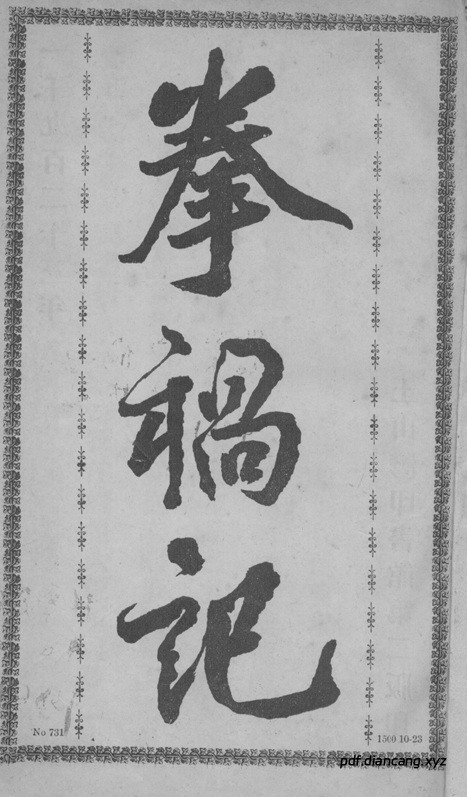 拳禍記
No 731
1500 10-23
pdf.diancang.xyz